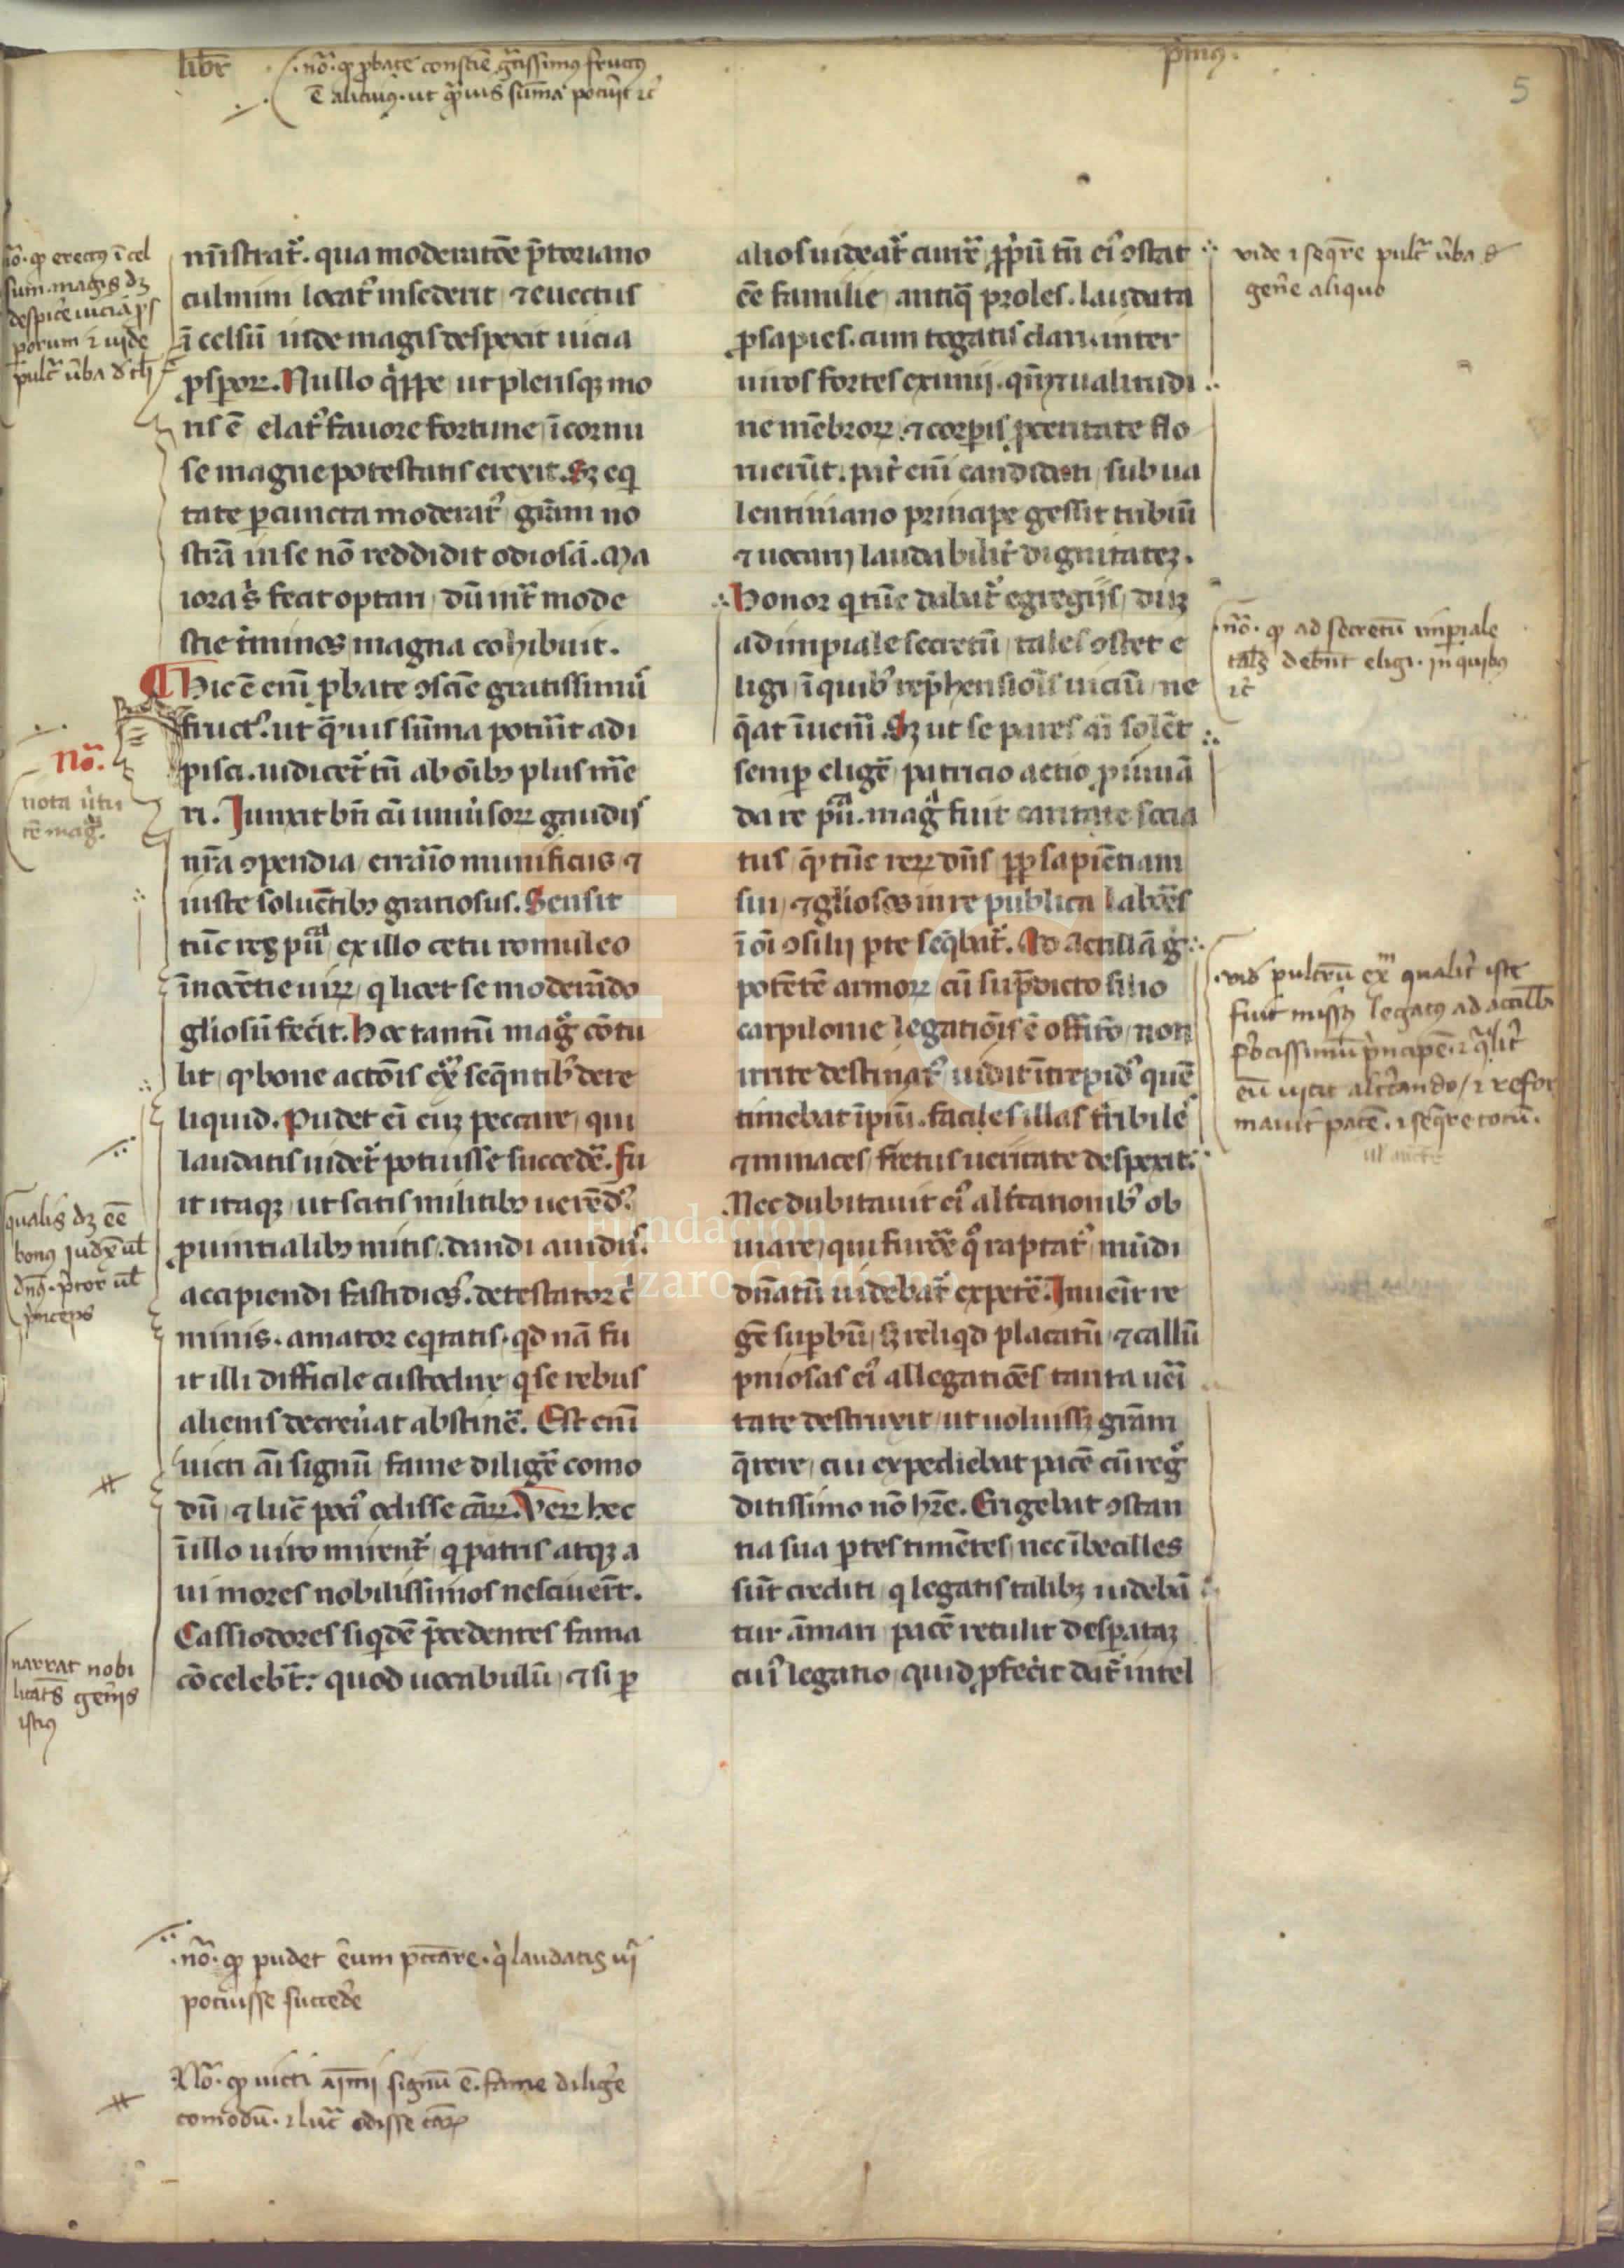 libr
·nō· ꝙ ꝓbate conscīe gͣtissimꝰ fructꝰ
ē alicuiꝰ· ut qͣuis sūma potiūit ⁊c̄
pͥmꝰ·
5
nō· ꝙ erectꝰ ī cel
sum· magis dꝫ
despice᷑ uicia ꝓs
perorum ⁊ uide
pulc᷑ ūba
mīstrat᷑. qua moderatōe p̄toriano
culmini locatꝰ insederit / ⁊ euectus
ī celsū inde magis despexit uicia
ꝓsperoꝝ. Nullo q̇ppe ut plerisqꝫ mo
ris ē elatꝰ fauore fortune / ī cornu
se magne potestatis erexit. Sꝫ eqͥ
tate ꝑ cuncta moderatꝰ / grām no
strā in se nō reddidit odiosā. Ma
iora s᷑ fecit optari / dū int᷑ mode
stie t᷑minos magna cohibuit.
Hic ē enī ꝓbate ꝯscīe gratissimꝰ
fructꝰ. ut qͣuis sūma potiūit adi
pisci. iudicet᷑ tn̄ ab oībꝫ plus m̄e
ri. Iunxit bn̄ cū uniūsoꝝ gaudijs
nr̄a ꝯpendia / errario munificus / ⁊
iuste soluētibꝫ graciosus. Sensit
tūc res puͣ ex illo cetu romuleo
īnocētie uirꝝ / q licet se moderādo
gliosū fecit. Hoc tantū magͦ cōtu
lit / ꝙ bone actōis exͣ seqn̄tibꝰ dere
liquid. Pudet eī eūꝫ peccare / qui
laudatis uidet᷑ potuisse succede᷑. Fu
it itaqꝫ ut scitis militibꝫ uerēdꝰ.
ꝓuintialibꝫ mitis. dandi auidꝰ.
accipiendi fastidiosꝰ. detestator c᷑
minis. amator eqͥtatis. qd nā fu
it illi difficile custodire / q se rebus
alienis decreūat abstine᷑. Est enī
uicti aī signū / fame dilige᷑ como
dū / ⁊ luc᷑ pocꝰ odisse cāꝝ. Veꝝ hec
ī illo uiro mirent᷑ / q patris atqꝫ a
ui mores nobilissimos nesciuer̄t.
Cassiodores siqͥdē p̄cedentes fama
cōcelebr̄t. quod uocabulū / ⁊ si ꝑ
Nō.
nota ūtu
tē magͣ.
qualis dꝫ eē
bonꝰ iudex ul̄
dn̄ꝰ· p̄tor ul̄
pͥnceps
narrat nobi
litatē gen̄is
istiꝰ
alios uideat᷑ curre᷑ / ꝓpiū tn̄ eiꝰ ꝯstat
eē familie / antiq̄ proles. laudata
ꝓsapies. cum togatis clari / inter
uiros fortes eximij. qm̄ ⁊ ualitudi
ne mēbroꝝ / ⁊ corꝑis ꝓceritate flo
ruerūt. pat᷑ enī candidati / sub ua
lentiniano principe gessit tribūi
⁊ notarij laudabilit᷑ dignitateꝫ.
Honor q tūc dabat᷑ egregijs / dūꝫ
ad impiale secretū / tales ꝯstet e
ligi / ī quibꝰ rep̄hensiōis uiciū / ne
q̄at īueniri. Sꝫ ut se pares aī solēt
semꝑ elige᷑ / patricio aetio ꝓ iuuā
da re puͣ. magͣ fuit caritate socia
tus / q̄ tūc reꝝ dn̄s / ꝓpꝉ sapiētiam
sui / ⁊ gliosos in re publica labōes
ī oī ꝯsilij ꝑte seq̄bat᷑. Ad attillā ġ
potētē armoꝝ cū sup̄dicto filio
carpilone legatiōis ē offitō / non
irrite destinatꝰ / uidit ītrepidꝰ quē
timebat īpiū. facies illas t᷑ribiles
⁊ minaces / fretus ueritate despexit.
Nec dubitauit eiꝰ alt᷑cationibꝰ ob
uiare / qui furore qͦ raptatꝰ / mūdi
dn̄atū uidebat᷑ expete᷑. Inuēit re
gē supbū / sꝫ reliqd placatū / ⁊ callū
pniosas eiꝰ allegatiōes tanta uēi
tate destruxit / ut uoluissꝫ grām
q̄rere / cui expediebat pacē cū regͦ
ditissimo nō hr̄e. Erigebat ꝯstan
tia sua ꝑtes timētes / nec ībecilles
sūt crediti / q legatis talibꝫ uidebā
tur armari / pacē retulit desꝑataꝫ
cuiꝰ legatio / quid ꝓfecit dat᷑ intel
vide ⁊ seq̄re pulc᷑ ūba d̄
gen̄e aliquo
·nō· ꝙ ad secretū imꝑiale
tales debn̄t eligi· in quibꝰ
⁊c̄
·vid̄ pulcrū exͣ qualit᷑ iste
fuit missꝰ legatꝰ ad attillā
ferocissimū pͥncipē· ⁊ qͣlit᷑
eū vicit alt᷑cando / ⁊ refor
mauit pacē· ⁊ seq̄re totū·
Fundación
Lázaro Galdiano
·nō· ꝙ pudet eūm pccare· qͥ laudatis ui᷑
potuisse succede᷑
Nō· ꝙ uicti aīmi signū ē· fame dilige᷑
comodū· ⁊ luc᷑ odisse caꝝ